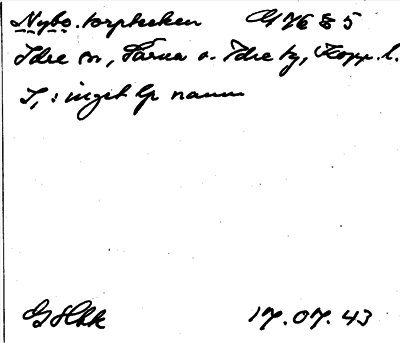 Nybo. torptecken G 17E 8 5
Idre sn, Särna o. Idre tg, Kopp. l.
I, : inget lp namn
17.07.43